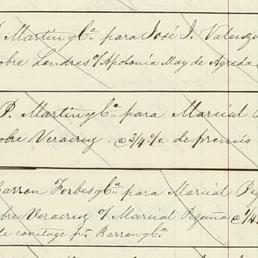 Martin y Cª para José I. Valenzu
obre Londres o/ Apolonia May de Agreda
P. Martin y Cª para Marcial P
obre Veracruz. @ 3/4 % de premio
Barron Forbes y Cª para Marcial Pe
obre Veracruz o/ Marcial Pezaña @ 1/4
de corretage pr. Barron y Cª